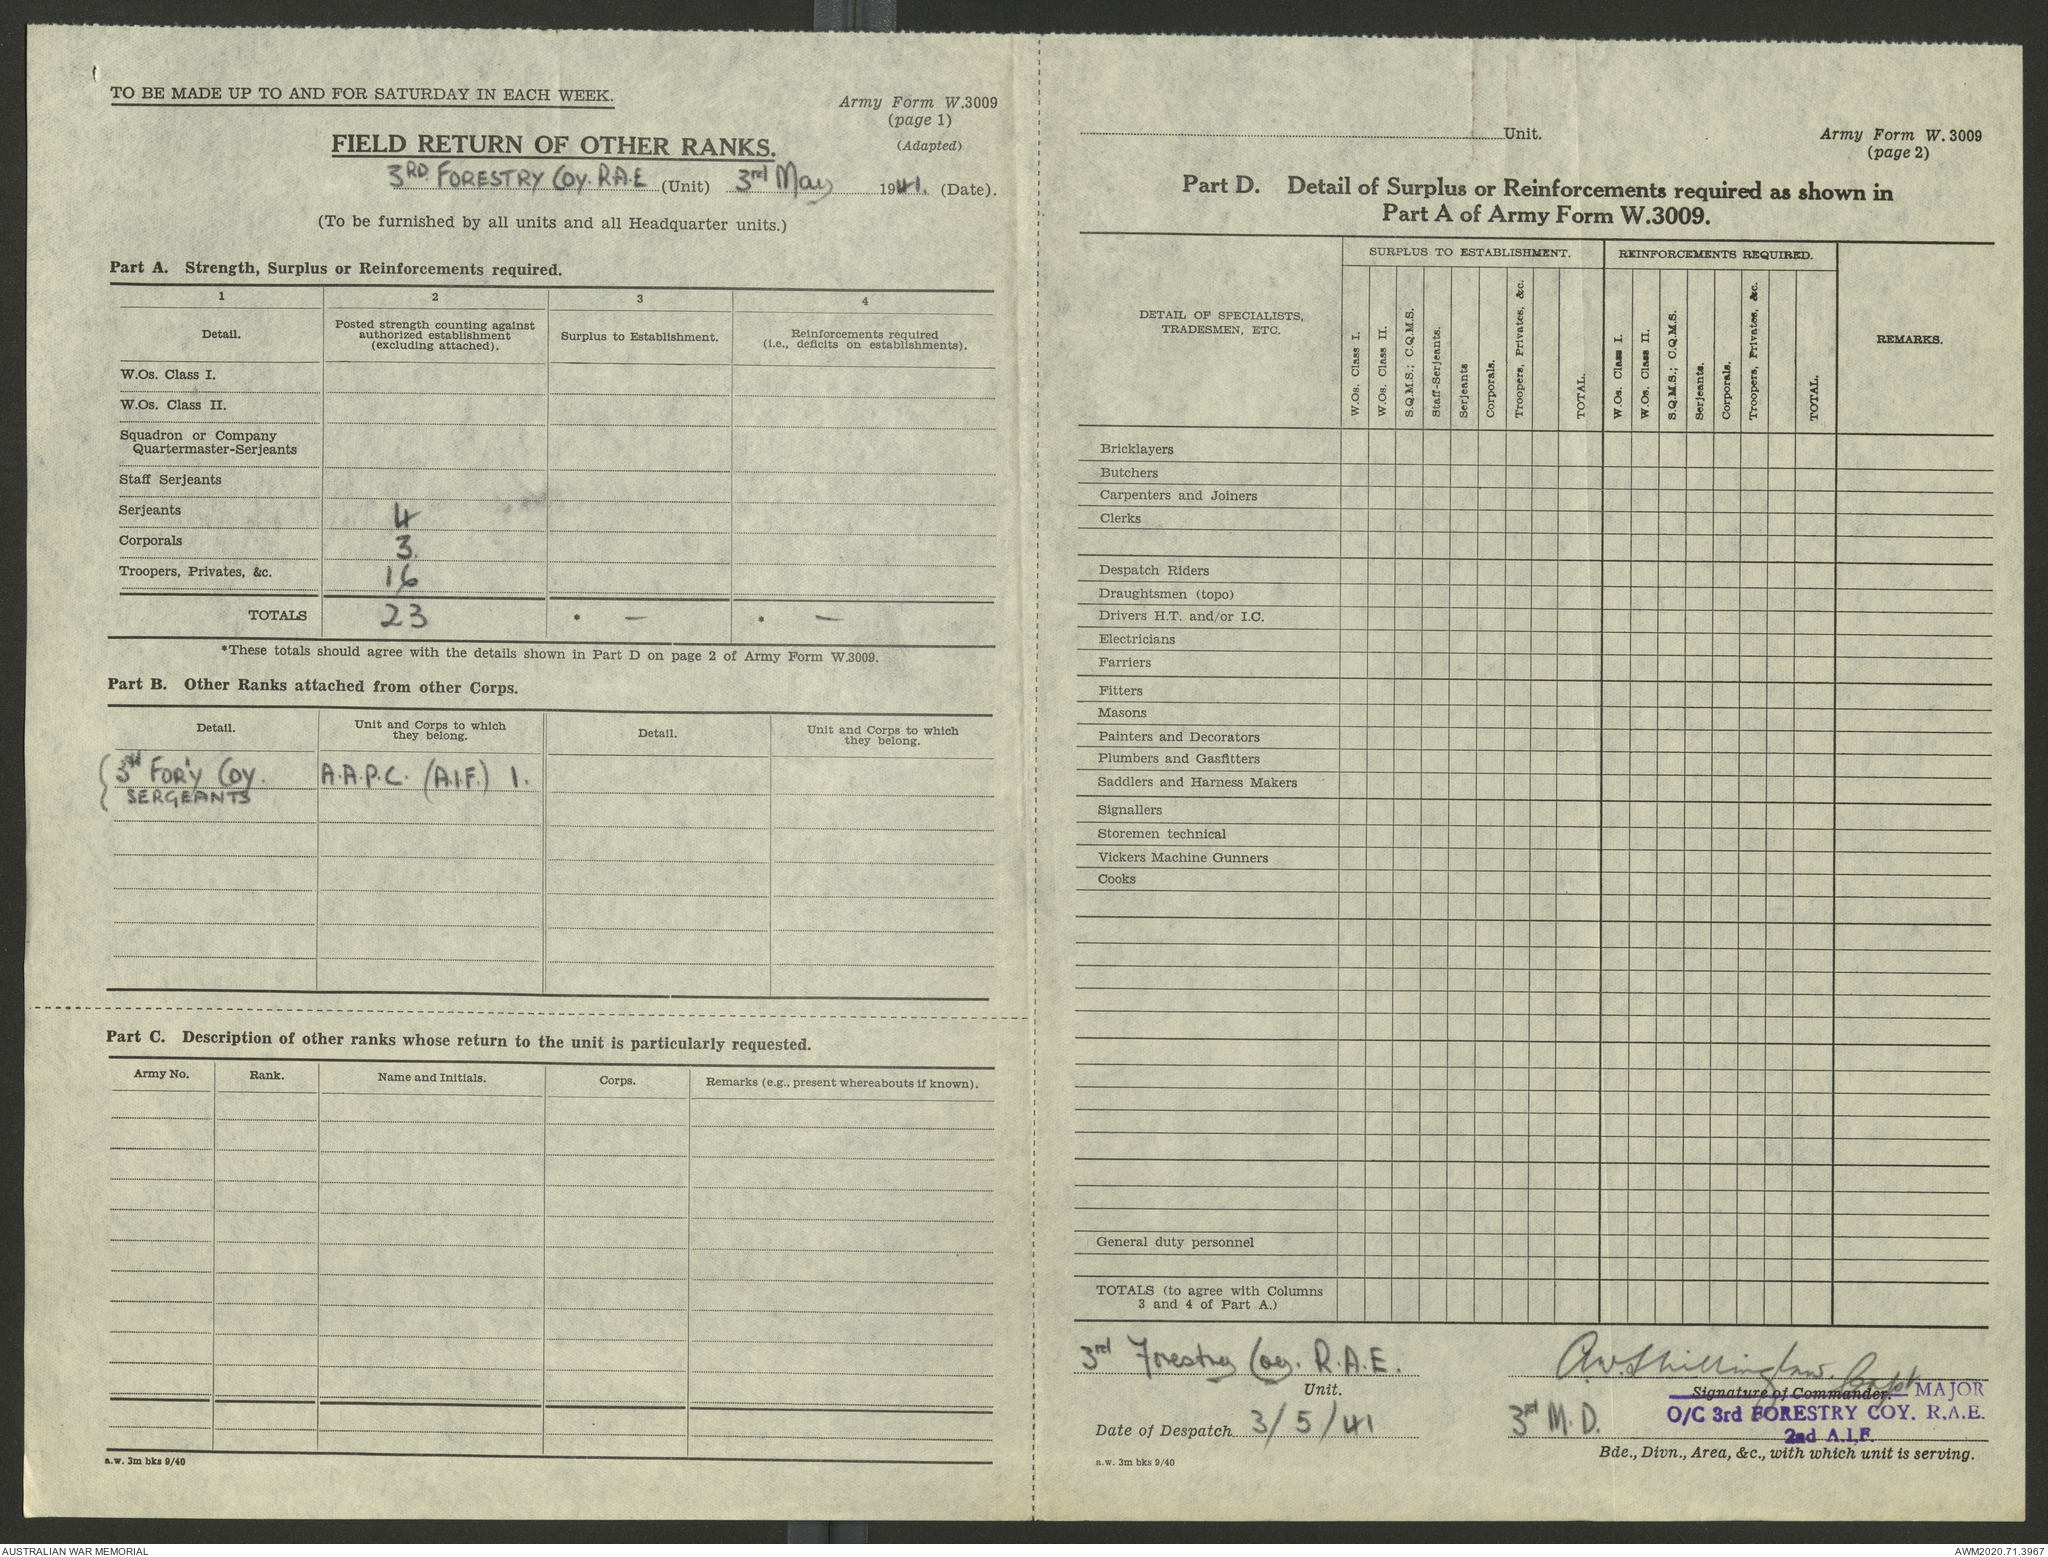 TO BE MADE UP TO AND FOR SATURDAY IN EACH WEEK.
Army Form W.3009
(page 1)
(Adapted)
FIELD RETURN OF OTHER RANKS.
3RD FORESTRY COY. R.A.E (Unit) 3rd May 1941. (Date).
(To be furnished by all units and all Headquarter units.)
Part A. Strength, Surplus or Reinforcements required.
1 2 3 4
Detail.
Posted strength counting against
authorized establishment
(excluding attached).
Surplus to Establishment.
Reinforcements required
(i.e., deficits on establishments).
W.Os. Class I.
W.Os. Class II.
Squadron or Company
Quartermaster-Serjeants
Staff Serjeants
Serjeants 4
Corporals 3.
Troopers, Privates, &c. 16
TOTALS 23 * — * —
*These totals should agree with the details shown in Part D on page 2 of Army Form W.3009.
Part B. Other Ranks attached from other Corps.
Detail.
Unit and Corps to which
they belong.
Detail.
Unit and Corps to which
they belong.
3rd For'y Coy. A.A.P.C. (A.I.F.) 1.
SERGEANTS
Part C. Description of other ranks whose return to the unit is particularly requested.
Army No. Rank. Name and Initials. Corps. Remarks (e.g., present whereabouts if known).
a.w. 3m bks 9/40
Unit.
Army Form W.3009
(page 2)
Part D. Detail of Surplus or Reinforcements required as shown in
Part A of Army Form W.3009.
DETAIL OF SPECIALISTS,
TRADESMEN, ETC.
SURPLUS TO ESTABLISHMENT.
W.Os. Class I.
W.Os. Class II.
S.Q.M.S.; C.Q.M.S.
Staff-Serjeants.
Serjeants
Corporals.
Troopers, Privates, &c.
TOTAL.
REINFORCEMENTS REQUIRED.
W.Os. Class I.
W.Os. Class II.
S.Q.M.S.; C.Q.M.S.
Serjeants.
Corporals.
Troopers, Privates, &c.
TOTAL.
REMARKS.
Bricklayers
Butchers
Carpenters and Joiners
Clerks
Despatch Riders
Draughtsmen (topo)
Drivers H.T. and/or I.C.
Electricians
Farriers
Fitters
Masons
Painters and Decorators
Plumbers and Gasfitters
Saddlers and Harness Makers
Signallers
Storemen technical
Vickers Machine Gunners
Cooks
General duty personnel
TOTALS (to agree with Columns
3 and 4 of Part A.)
3rd Forestry Coy. R.A.E.
Unit.
A.W. Shillinglaw. Capt
Signature of Commander. MAJOR
O/C 3rd FORESTRY COY. R.A.E.
2nd A.I.F.
Date of Despatch 3/5/41
3rd M.D.
Bde., Divn., Area, &c., with which unit is serving.
a.w. 3m bks 9/40
AUSTRALIAN WAR MEMORIAL
AWM2020.71.3967